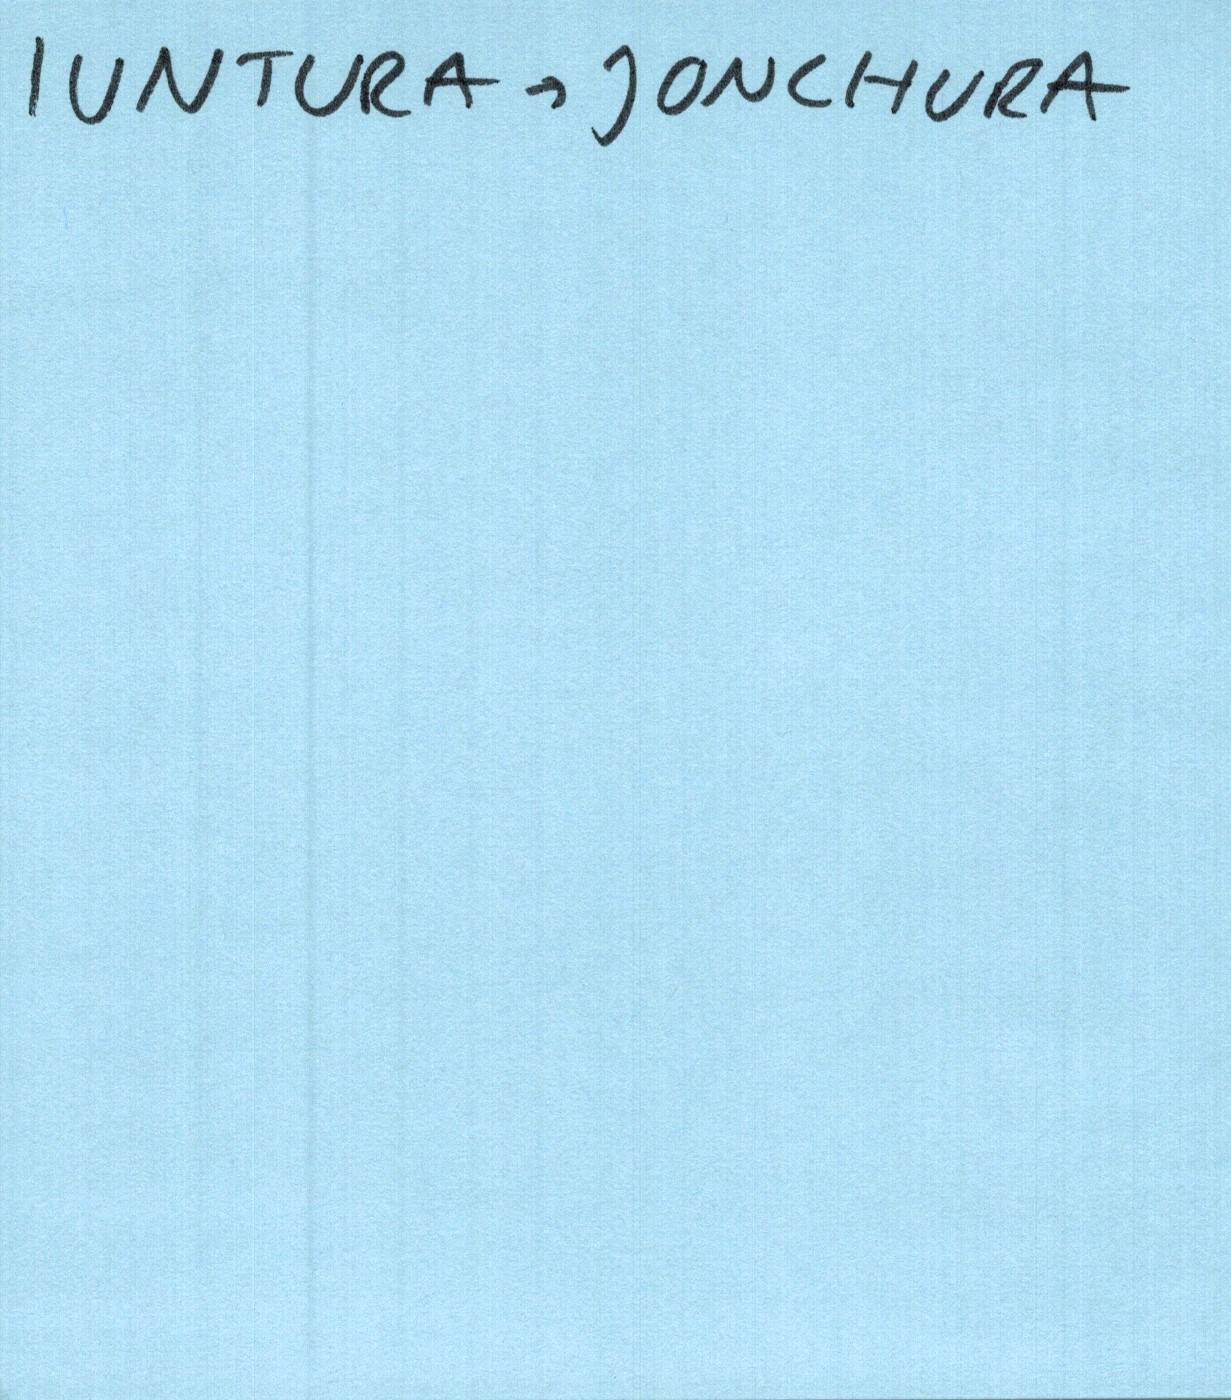 IUNTURA → JONCHURA